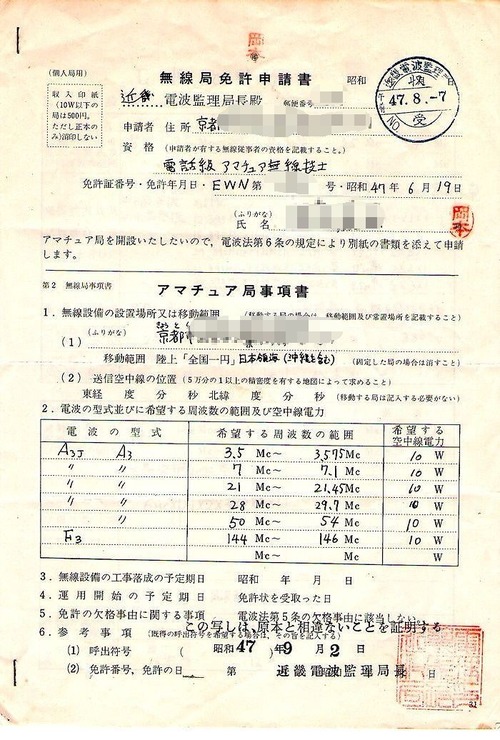 (個人局用)
岡本
無線局免許申請書 昭和
収入印紙
(10W以下の
局は500円。
ただし正本の
み)消印しない
近畿 電波監理局長殿 郵便番号
47.8.-7
受
申請者 住所 京都
資格 (申請者が有する無線従事者の資格を記載すること。)
電話級 アマチュア無線技士
免許証番号・免許年月日・EWN第 号・昭和47年6月19日
(ふりがな)
氏名
岡本
アマチュア局を開設いたしたいので、電波法第6条の規定により別紙の書類を添えて申請
します。
第2 無線局事項書 アマチュア局事項書
1. 無線設備の設置場所又は移動範囲 (移動する局の場合は、移動範囲及び常置場所を記載すること)
(ふりがな)
(1) 京都
移動範囲 陸上「全国一円」日本領海(沖縄を含む) (固定した局の場合は消すこと)
(2) 送信空中線の位置 (5万分の1以上の精密度を有する地図によって求めること)
東経 度 分秒 北緯 度 分秒 (移動する局は記入する必要がない)
2. 電波の型式並びに希望する周波数の範囲及び空中線電力
電波の型式 希望する周波数の範囲 希望する空中線電力
A3J A3 3.5 Mc〜 3.575Mc 10 W
〃 〃 7 Mc〜 7.1 Mc 10 W
〃 〃 21 Mc〜 21.45Mc 10 W
〃 〃 28 Mc〜 29.7 Mc 10 W
〃 50 Mc〜 54 Mc 10 W
F3 144 Mc〜 146 Mc 10 W
Mc〜 Mc W
3. 無線設備の工事落成の予定期日 昭和 年 月 日
4. 運用開始の予定期日 免許状を受取った日
5. 免許の欠格事由に関する事項 電波法第5条の欠格事由に該当しない。
この写しは、原本と相違ないことを証明する
6. 参考事項 (既得の呼出符号を希望する場合は、その旨を記入する)
(1) 呼出符号 ( 昭和47年9月2日 )
(2) 免許番号、免許の日 第 近畿電波監理局長 日